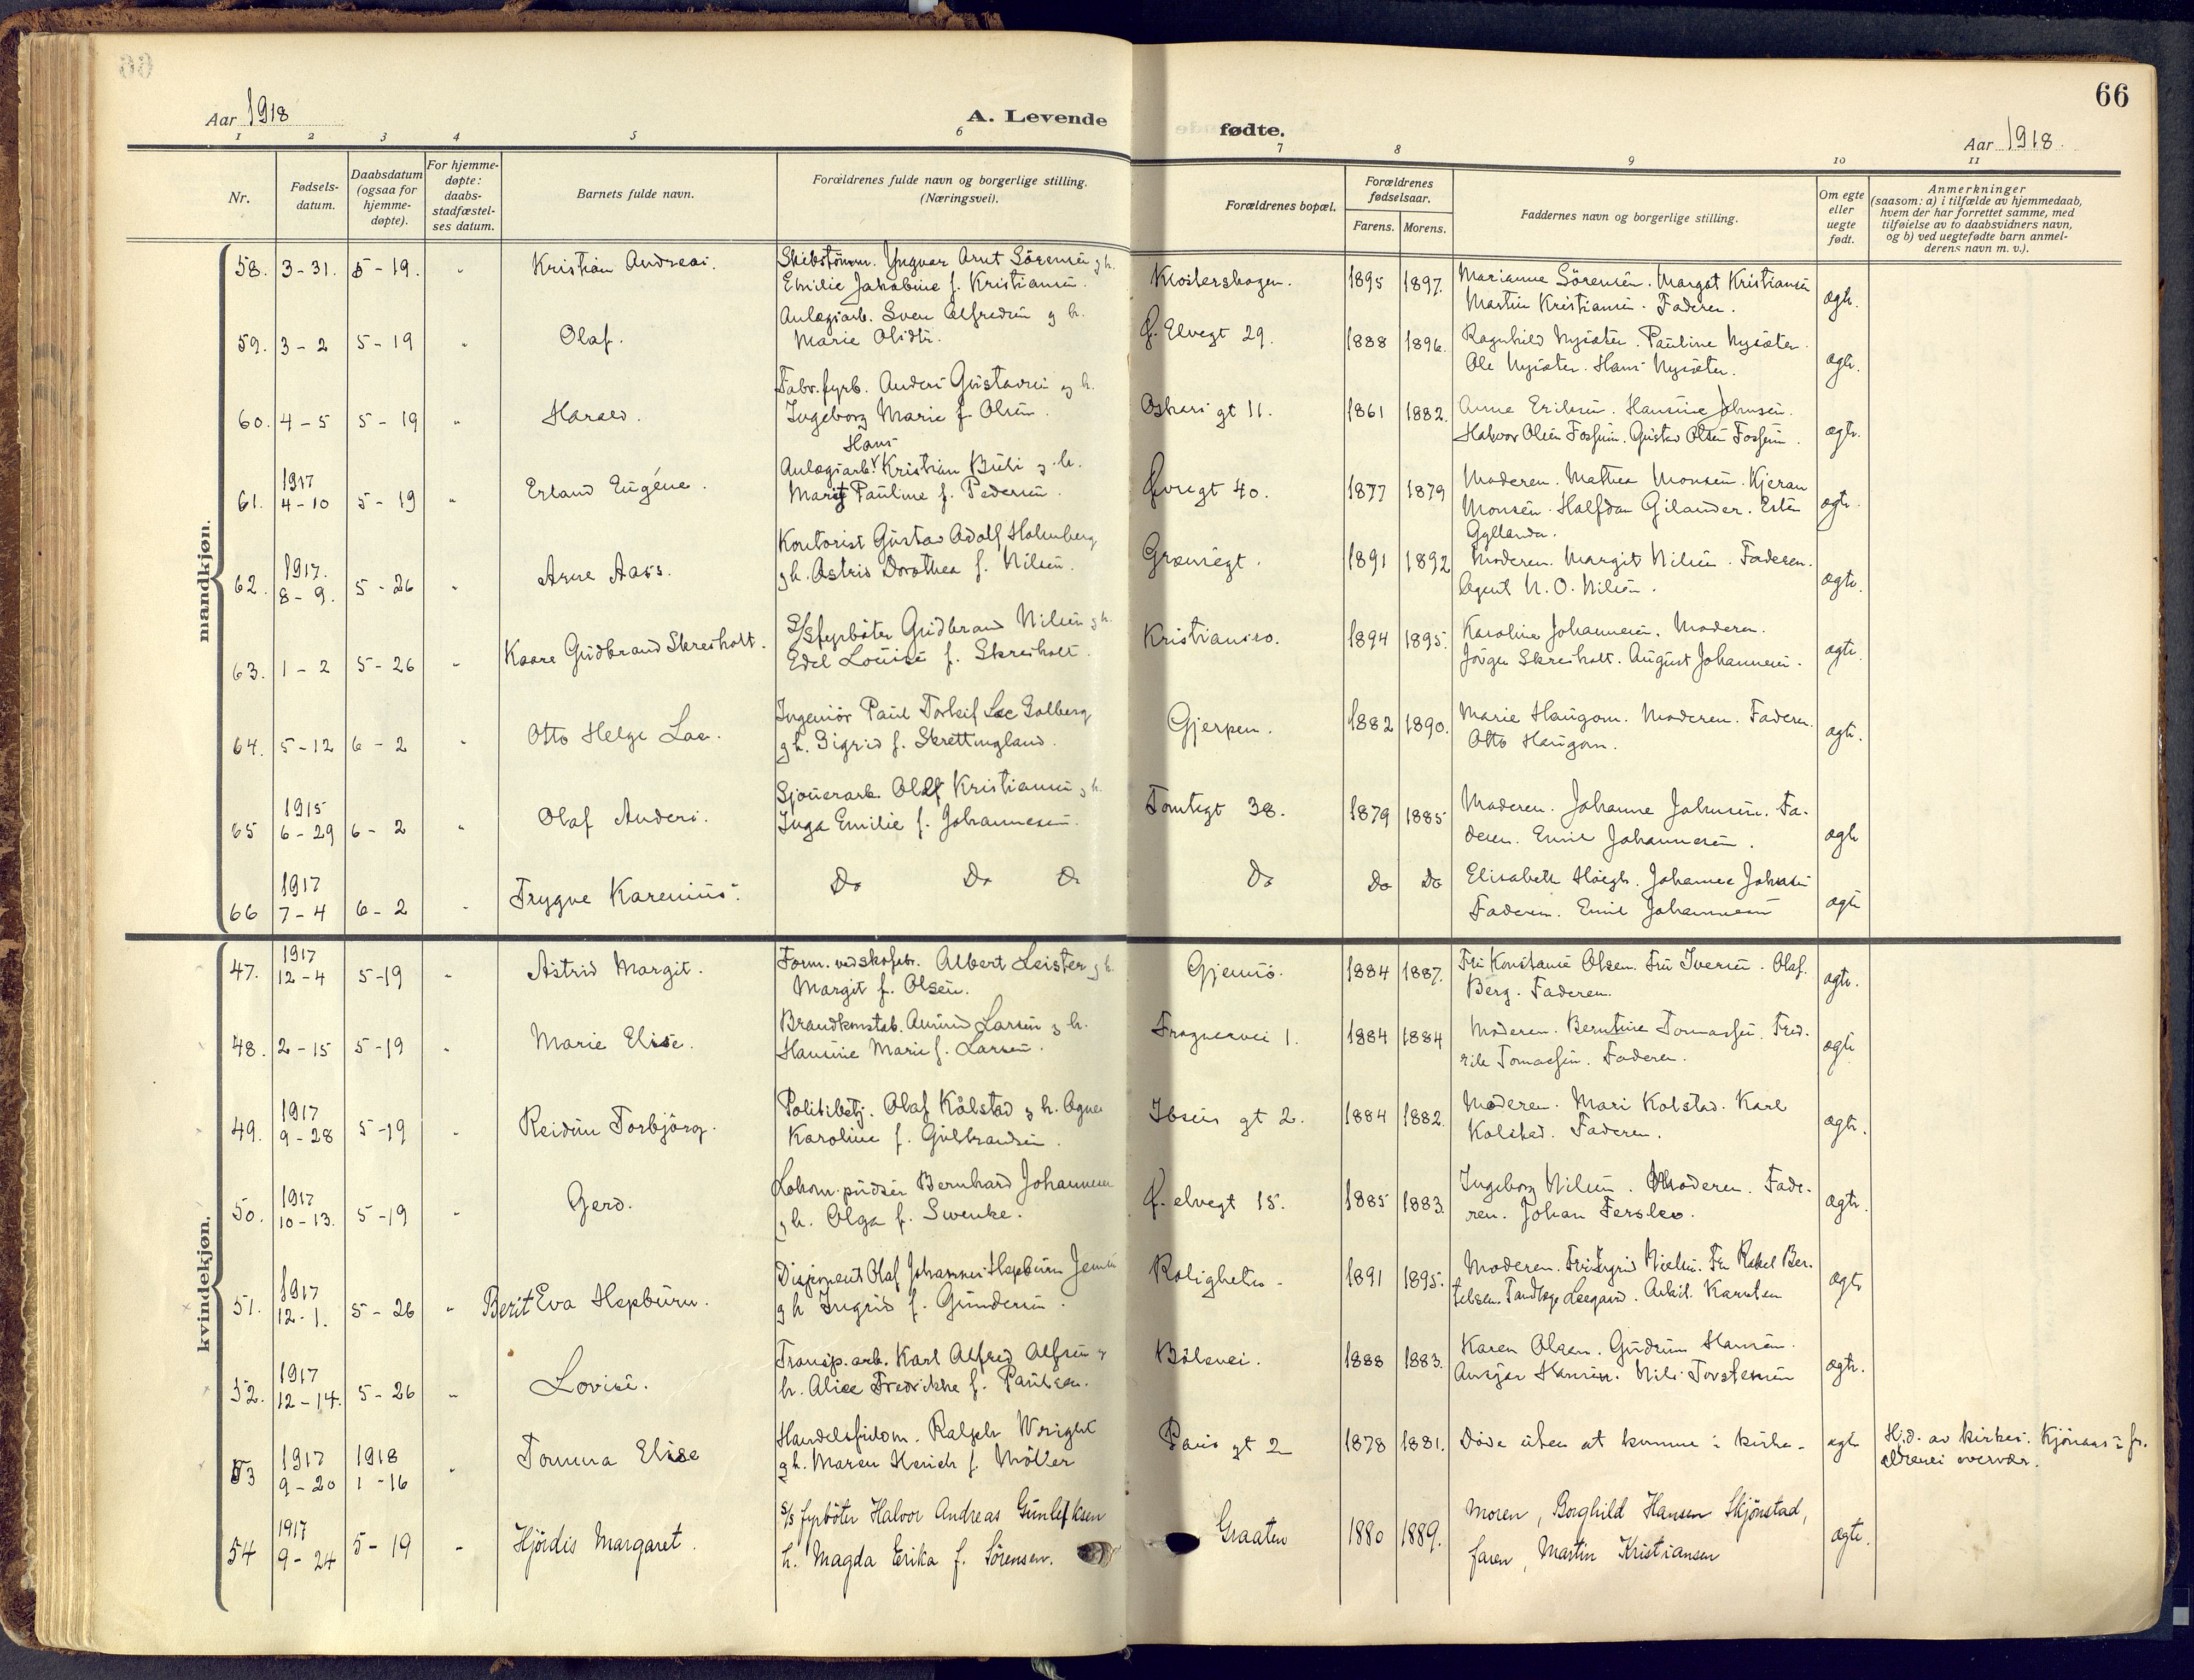 66
Aar 1918
A. Levende fødte.
Aar 1918.
1 2 3 4 5 6 7 8 9 10 11
Nr.
Fødsels-
datum.
Daabsdatum
(ogsaa for
hjemme-
døpte).
For hjemme-
døpte:
daabs-
stadfæstel-
ses datum.
Barnets fulde navn.
Forældrenes fulde navn og borgerlige stilling.
(Næringsvei).
Forældrenes bopæl.
Forældrenes
fødselsaar.
Farens. Morens.
Faddernes navn og borgerlige stilling.
Om egte
eller
uegte
født.
Anmerkninger
(saasom: a) i tilfælde av hjemmedaab,
hvem der har forrettet samme, med
tilføielse av to daabsvidners navn,
og b) ved uegtefødte barn anmel-
derens navn m. v.).
mandkjøn.
58. 3-31. 5-19. " Kristian Andreas.
Skibstömm. Yngvar Arnt Sörensen g h.
Emilie Jakobine f. Kristiansen.
Klosterskogen. 1895 1897.
Marianne Sörensen. Margot Kristiansen
Martin Kristiansen. Faderen.
ægte.
59. 3-2 5-19 " Olaf.
Anlægsarb. Sven Alfredsen g h.
Marie Olidtr.
Ø. Elvegt 29. 1888 1896.
Ragnhild Nysæter. Pauline Nysæter.
Ole Nysæter. Hans Nysæter.
ægte.
60. 4-5 5-19 " Harald.
Fabr. fyrb. Anders Gustavsen g h.
Ingeborg Marie f. Olsen.
Oskars gt 11. 1861 1882.
Anne Eriksen. Hansine Johnsen.
Halvor Olsen Fossum. Gustav Olsen Fossum.
ægte.
61. 1917 4-10 5-19 " Erland Eugéne.
Hans
Anlægsarb. Kristian Buli g. h.
Marit Pauline f. Pedersen.
Øvregt 40. 1877 1879
Moderen. Mathea Monsen. Kjeran
Monsen. Halfdan Gilander. Ester
Gyllander.
ægte.
62. 1917. 8-9. 5-26 " Arne Aass.
Kontorist Gustav Adolf Holmberg
g h. Astrid Dorothea f. Nilsen.
Grænsegt. 1891 1892
Moderen. Margit Nilsen. Faderen.
Agent N. O. Nilsen.
ægte.
63. 1-2 5-26 " Kaare Gudbrand Skreiholt.
S/S fyrböter Gudbrand Nilsen g h.
Edel Louise f. Skreiholt.
Kristiania. 1894 1895.
Karoline Johannesen. Moderen.
Jörgen Skreiholt. August Johannesen.
ægte.
64. 5-12 6-2 " Otto Helge Lae.
Ingeniör Paul Torleif Lae Solberg
g h. Sigrid f. Skrettingland.
Gjerpen. 1882 1890.
Marie Haugom. Moderen. Faderen.
Otto Haugom.
ægte.
65 1915 6-29 6-2 " Olaf Anders.
Sjouerarb. Olaf Kristiansen g h.
Inga Emilie f. Johannesen.
Tomtegt 38. 1879 1885
Moderen. Johanne Johnsen. Fa-
deren. Emil Johannesen.
ægte
66 1917 7-4 6-2 " Trygve Karenius.
Do Do Do
Do Do Do
Elisabeth Höegh. Johanne Johnsen
Faderen. Emil Johannesen
ægte
kvindekjøn.
47. 1917 12-4 5-19 " Astrid Margit.
Form. ved skofabr. Albert Leister g h.
Margit f. Olsen.
Gjemsö. 1884 1887.
Fru Konstanse Olsen. Fru Iversen. Olaf
Berg. Faderen.
ægte.
48. 2-15 5-19 " Marie Elise.
Brandkonstab. Amund Larsen g h.
Hansine Marie f. Larsen.
Frognervei 1. 1884 1884
Moderen. Berntine Tomassen. Fred-
rik Tomassen. Faderen.
ægte
49. 1917 9-28 5-19 " Reidun Torbjörg.
Politibetj. Olaf Kålstad g h. Agnes
Karoline f. Gulbrandsen.
Ibsens gt 2. 1884 1882.
Moderen. Mari Kolstad. Karl
Kolstad. Faderen.
ægte.
50. 1917 10-13. 5-19 " Gerd.
Lokom. pudser Bernhard Johannesen
g h. Olga f. Swenke.
Ø. elvegt 15. 1885 1883.
Ingeborg Nilsen. Moderen. Fade-
ren. Johan Ferslev.
ægte.
51. 1917 12-1. 5-26 " Berit Eva Hepburn.
Disponent Olaf Johannes Hepburn Jensen
g h Ingrid f. Gundersen.
Roligheten. 1891 1895.
Moderen. Fru Sigrid Nielsen. Fr. Rakel Ber-
telsen. Tandlæge Leegaard. Arkit. Karsten
ægte
52. 1917 12-14. 5-26 " Lovise.
Transp. arb. Karl Alfred Alfsen g
h. Alice Fredrikke f. Paulsen.
Bölevei. 1888 1883.
Karen Olsen. Gudrun Hansen.
Ansgar Hansen. Nils Torstensen
ægte.
53 1917 9-20 1918 1-16 " Tomma Elise
Handelsfuldm. Ralph Wright
g h. Maren Henich f. Möller
Paus gt 2 1878 1881.
Döde uten at komme i kirke.
ægte
Hj.d. av kirkes. Kjönaas i for-
ældrenes overvær.
54 1917 9-24 5-19 " Hjördis Margaret.
s/s fyrböter Halvor Andreas Gunleiksen
h. Magda Erika f. Sörensen.
Graaten 1880 1889.
Moren, Borghild Hansen Skjönstad,
faren, Martin Kristiansen
ægte.